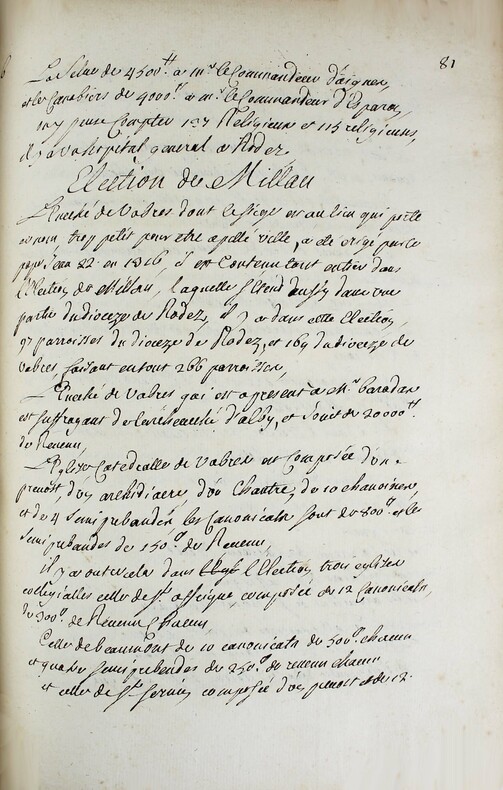 81
La Selve de 4500ᵗᵗ a mʳ le Commandeur d'aignen,
et les Canabiers de 4000ᵗᵗ a mʳ le Commandeur d'Esparon,
on y peut Compter 127 Religieux et 115 religieuses,
il y a un hospital general a Rodez.
Election de Millau
L'Eveché de Vabres dont le siege est au lieu qui porte
ce nom, trop petit pour etre apellé ville, a eté erigé par le
pape Jean 22. en 1316, il est Contenu tout entier dans
l'Election de Millau, laquelle s'etend aussy dans une
partie du dioceze de Rodez, il y a dans cette Election,
97 parroisses du dioceze de Rodez, et 169 du dioceze de
Vabres, faisant en tout 266 parroisses,
L'Eveché de Vabres qui est a present a Mʳ baradat
est suffragant de l'archeveché d'alby, et jouit de 20000ᵗᵗ
de Revenu,
L'Eglise Catedralle de Vabres est Composée d'un
prevost d'un archidiacre, d'un Chantre, de 10 chanoines,
et de 4 semiprebandés, les Canonicats sont de 800ᵗᵗ et les
semiprebandes de 150ᵗᵗ de Revenu,
il y a outre cela dans l'Election trois eglises
collegialles celle de Sᵗ affrique composée de 12 Canonicats,
de 300ᵗᵗ de Revenu Chacun
Celle de beaumont de 10 canonicats de 500ᵗᵗ chacun
et quatre semiprebendes de 250ᵗᵗ de revenu chacun
et celle de Sᵗ Sernin composée d'un prevost et de 12